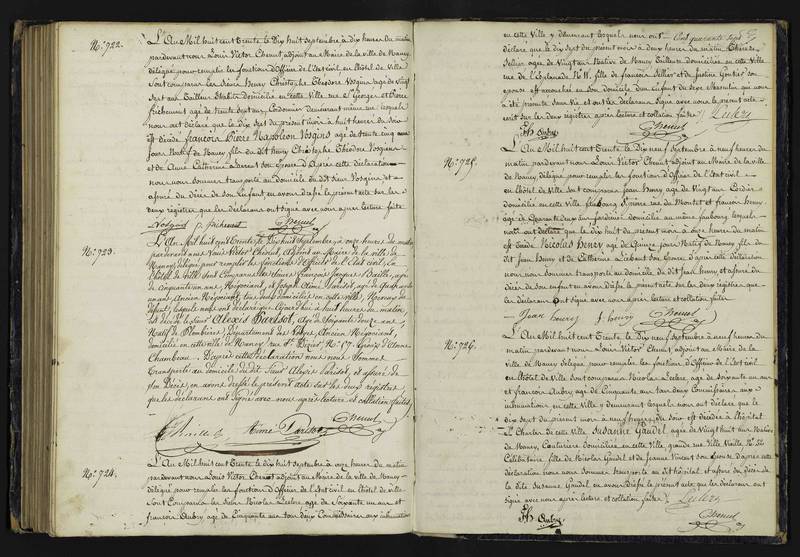 N.° 922.
L'An Mil huit cent Trente le Dix huit Septembre à dix heures du matin
pardevant nous Louis Victor Chenut adjoint au Maire de la ville de Nancy
délégué pour remplir les fonctions d'Officier de l'état civil, en l'hôtel de Ville
Sont comparus les Sieurs Henry Christophe Théodore Vosgins agé de Vingt
Sept ans Tailleur d'habits domicilié en cette Ville rue St Georges et Pierre
frichement agé de trente Sept ans, Cordonnier demeurant même rue lesquels
nous ont déclaré que le Dix Sept du présent mois à huit heures du Soir
est décédé françois Pierre Napoléon Vosgins agé de trente cinq
jours Natif de Nancy fils du dit Henry Christophe Théodore Vosgins
et de Anne Catherine son Epouse D'Après cette déclaration
nous nous sommes transporté au domicile du dit Sieur Vosgins et
assuré du décès de son Enfant, en avons dressé le présent acte sur les
deux régistres que les déclarans ont signé avec nous après lecture faite
Vosgins p. frichement Chenut
N.° 923.
L'An Mil huit cent Trente, le Dix huit Septembre, à onze heures du matin
pardevant nous Louis Victor Chenut, Adjoint au Maire de la ville de
Nancy délégué pour remplir les fonctions d'Officier de l'Etat civil, en
l'hôtel de ville Sont Comparus les Sieurs françois Jacques Noaille, agé
de Cinquante un ans, Négociant, et Joseph Aimé Parisot, agé de
un ans, Ancien Négociant, tous deux domiciliés en cette ville,
défunt, lesquels nous ont déclaré que Aujourd'hui à huit heures du matin
est décédé le Sieur Alexis Parisot, agé de Soixante douze ans
Natif de Plombières, Département des Vosges, Ancien Négociant,
domicilié en cette ville de Nancy, rue St Dizier, N.° 67. Epoux d'Anne
Chambeau. D'après cette déclaration nous nous Sommes
Transporté au domicile du dit Sieur Alexis Parisot, et assuré de
son Décès, en avons dressé le présent acte sur les deux registres
que les déclarans ont signés avec nous après lecture et collation faites
Noaille Aimé Parisot Chenut
N.° 924.
L'An Mil huit cent Trente le dix huit Septembre à onze heures du matin
pardevant nous Louis Victor Chenut adjoint au Maire de la ville de Nancy
délégué pour remplir les fonctions d'Officier de l'Etat civil en l'hôtel de ville
Sont Comparus les Sieurs Nicolas Leclerc agé de Soixante un ans et
françois Aubry agé de Cinquante ans tous deux Commissaires aux inhumations
en cette Ville y demeurant lesquels nous ont
déclaré que le Dix Sept du présent mois à deux heures du matin Thérèse
Sellier agée de Vingt ans Native de Nancy Tailleuse domiciliée en cette Ville
rue de l'Esplanade N.° 11, fille de françois Sellier et de Justine son
épouse est accouchée en son domicile d'un Enfant du Sexe Masculin qui nous
a été présenté Sans Vie et ont les déclarans Signé avec nous le présent acte
écrit sur les deux registres après lecture et collation faites Leclerc
Fs Aubry Chenut
N.° 925.
L'An Mil huit cent Trente le Dix neuf Septembre à neuf heures du
matin pardevant nous Louis Victor Chenut adjoint au Maire de la ville
de Nancy délégué pour remplir les fonctions d'Officier de l'état civil
en l'hôtel de Ville sont comparus Jean Henry agé de Vingt ans Cordier
domicilié en cette Ville faubourg St Pierre rue du Montet et françois Henry
agé de Quarante deux ans Jardinier domicilié au même faubourg lesquels
nous ont déclaré que le Dix huit du présent mois à onze heures du matin
est décédé Nicolas Henry agé de Quinze jours Natif de Nancy fils du
dit Jean Henry et de Catherine son Epouse D'après cette déclaration
nous nous sommes transporté au domicile du dit Jean Henry et assuré du
décès de son enfant en avons dressé le présent acte sur les deux registres que
les déclarans Ont Signé avec nous après lecture et collation faites
Jean henry f. henry Chenut
N.° 926.
L'An Mil huit cent Trente le Dix neuf Septembre à neuf heures du
matin pardevant nous Louis Victor Chenut adjoint au Maire de la
Ville de Nancy délégué pour remplir les fonctions d'Officier de l'Etat civil
en l'hôtel de Ville Sont comparus Nicolas Leclerc agé de Soixante un ans
et françois Aubry agé de Cinquante ans tous deux Commissaires aux
inhumations en cette Ville y demeurant lesquels nous ont déclaré que le
Dix Sept du présent mois à neuf heures du Soir est décédée à l'hôpital
St Charles de cette Ville Susanne Gaudel agée de Vingt huit ans Native
de Nancy, Couturière domiciliée en cette Ville, grande rue Ville Vieille
Célibataire fille de Nicolas Gaudel et de Jeanne Vincent son Epouse d'après cette
déclaration nous nous sommes transporté au dit hôpital et assuré du décès de
la dite Susanne Gaudel en avons dressé le présent acte que les déclarans ont
Signé avec nous après lecture et collation faites Leclerc
Fs Aubry Chenut